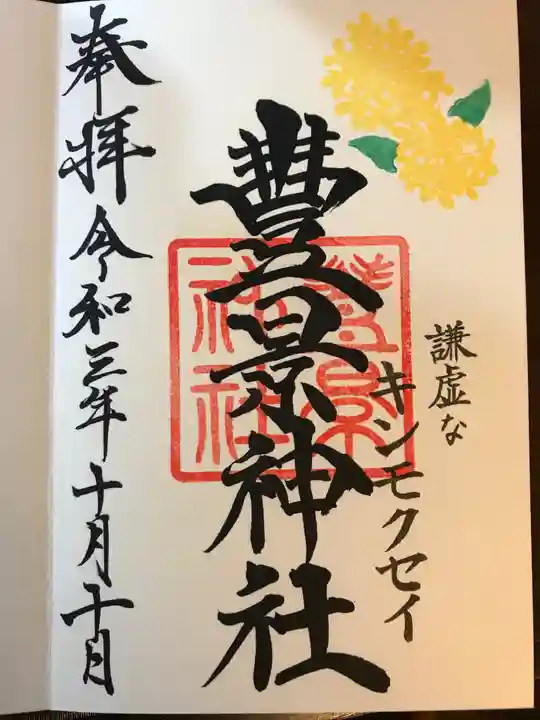 謙虚な
キンモクセイ
豐景神社
豐景
神社
奉拝 令和三年十月十日